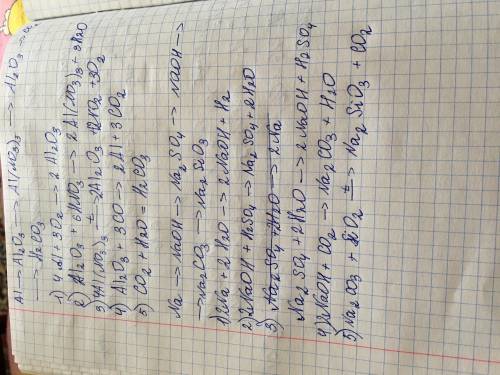 Al → Al₂O₃ → Al(NO₃)₃ → Al₂O₃ →
→ H₂CO₃
1) 4Al + 3O₂ → 2Al₂O₃
2) Al₂O₃ + 6HNO₃ → 2Al(NO₃)₃ + 3H₂O
3) 4Al(NO₃)₃ t→ 2Al₂O₃ 12NO₂ + 3O₂
4) Al₂O₃ + 3CO → 2Al + 3CO₂
5) CO₂ + H₂O = H₂CO₃
Na → NaOH → Na₂SO₄ → NaOH →
→ Na₂CO₃ → Na₂SiO₃
1) 2Na + 2H₂O → 2NaOH + H₂
2) 2NaOH + H₂SO₄ → Na₂SO₄ + 2H₂O
3) Na₂SO₄ + H₂O → 2Na
Na₂SO₄ + 2H₂O → 2NaOH + H₂SO₄
4) 2NaOH + CO₂ → Na₂CO₃ + H₂O
5) Na₂CO₃ + SiO₂ t→ Na₂SiO₃ + CO₂